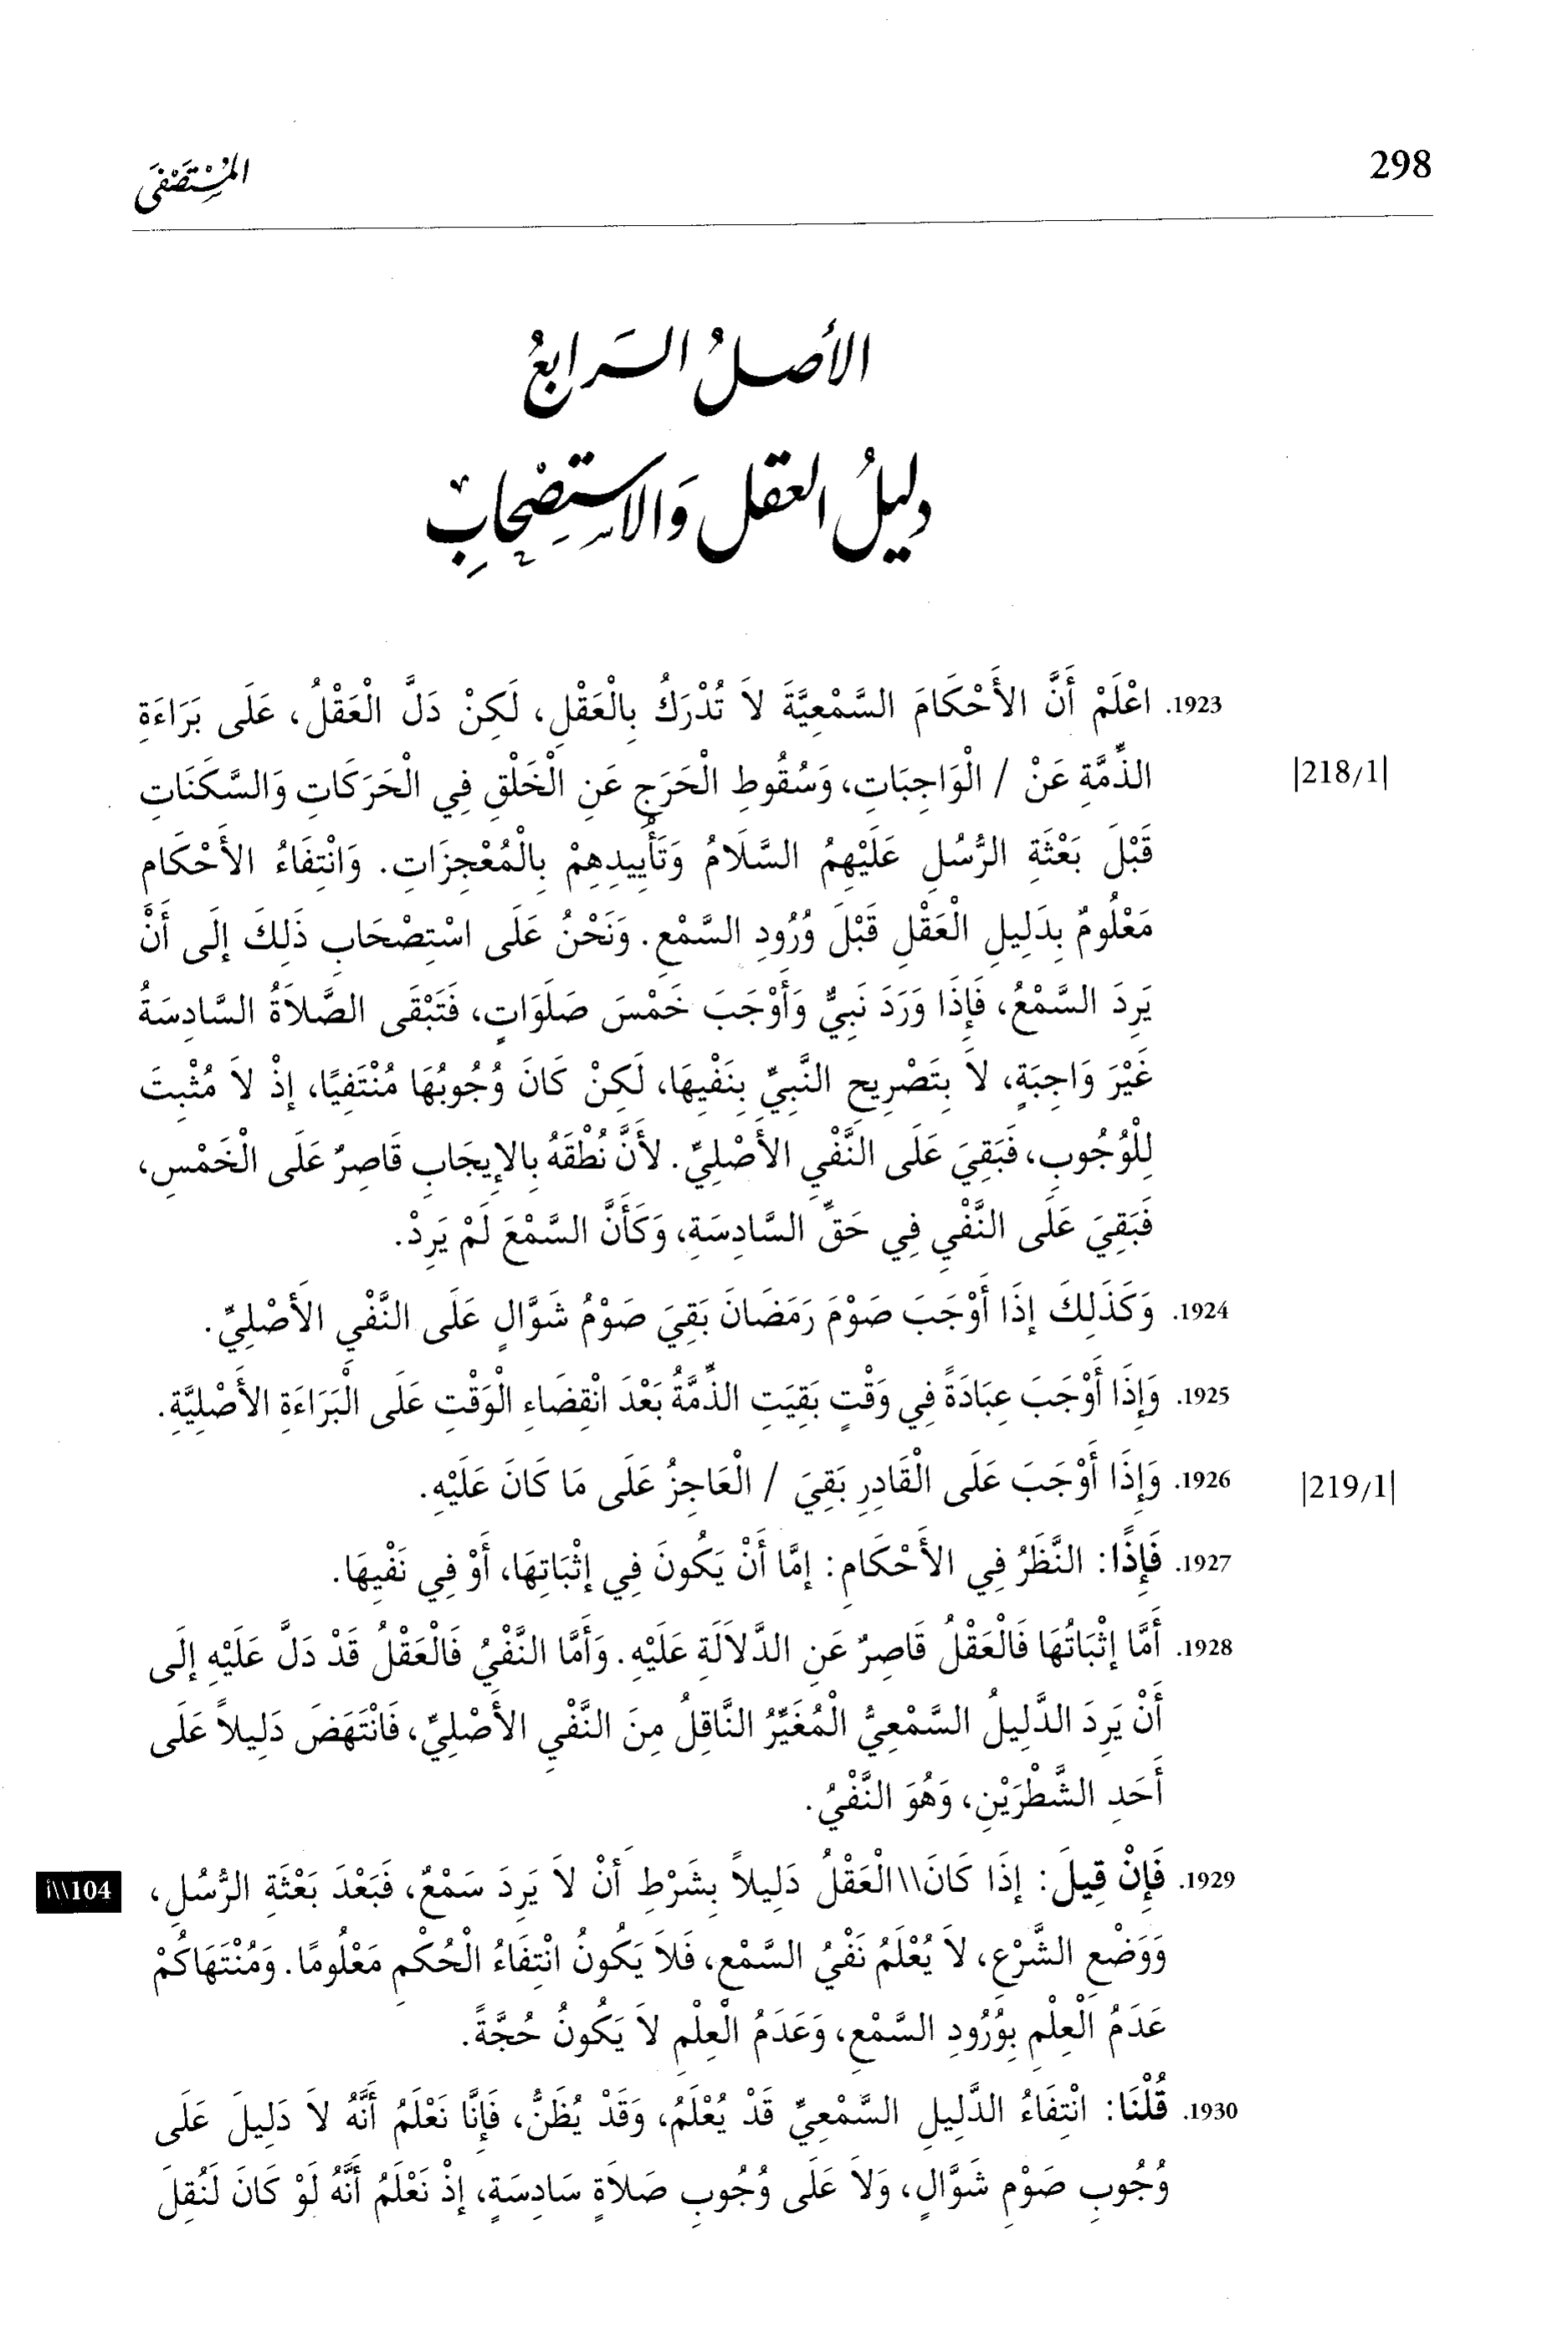 298
المُسْتَصْفَى
الأصلُ الرَابعُ
دليلُ العقل وَالاستِصْحابِ
1923. اعْلَمْ أَنَّ الأَحْكَامَ السَّمْعِيَّةَ لاَ تُدْرَكُ بِالْعَقْلِ، لَكِنْ دَلَّ الْعَقْلُ، عَلَى بَرَاءَةِ
|218/1| الذِّمَّةِ عَنْ / الْوَاجِبَاتِ، وَسُقُوطِ الْحَرَجِ عَنِ الْخَلْقِ فِي الْحَرَكَاتِ وَالسَّكَنَاتِ
قَبْلَ بَعْثَةِ الرُّسُلِ عَلَيْهِمُ السَّلَامُ وَتَأْيِيدِهِمْ بِالْمُعْجِزَاتِ. وَانْتِفَاءُ الأَحْكَامِ
مَعْلُومٌ بِدَلِيلِ الْعَقْلِ قَبْلَ وُرُودِ السَّمْعِ. وَنَحْنُ عَلَى اسْتِصْحَابِ ذَلِكَ إِلَى أَنَّ
يَرِدَ السَّمْعُ، فَإِذَا وَرَدَ نَبِيٌّ وَأَوْجَبَ خَمْسَ صَلَوَاتٍ، فَتَبْقَى الصَّلاَةُ السَّادِسَةُ
غَيْرَ وَاجِبَةٍ، لاَ بِتَصْرِيحِ النَّبِيِّ بِنَفْيِهَا، لَكِنْ كَانَ وُجُوبُهَا مُنْتَفِيًا، إِذْ لاَ مُثْبِتَ
لِلْوُجُوبِ، فَبَقِيَ عَلَى النَّفْيِ الأَصْلِيِّ. لأَنَّ نُطْقَهُ بِالإِيجَابِ قَاصِرٌ عَلَى الْخَمْسِ،
فَبَقِيَ عَلَى النَّفْيِ فِي حَقِّ السَّادِسَةِ، وَكَأَنَّ السَّمْعَ لَمْ يَرِدْ.
1924. وَكَذَلِكَ إِذَا أَوْجَبَ صَوْمَ رَمَضَانَ بَقِيَ صَوْمُ شَوَّالٍ عَلَى النَّفْيِ الأَصْلِيِّ.
1925. وَإِذَا أَوْجَبَ عِبَادَةً فِي وَقْتٍ بَقِيَتِ الذِّمَّةُ بَعْدَ انْقِضَاءِ الْوَقْتِ عَلَى الْبَرَاءَةِ الأَصْلِيَّةِ.
|219/1| 1926. وَإِذَا أَوْجَبَ عَلَى الْقَادِرِ بَقِيَ / الْعَاجِزُ عَلَى مَا كَانَ عَلَيْهِ.
1927. فَإِذًا: النَّظَرُ فِي الأَحْكَامِ: إِمَّا أَنْ يَكُونَ فِي إِثْبَاتِهَا، أَوْ فِي نَفْيِهَا.
1928. أَمَّا إِثْبَاتُهَا فَالْعَقْلُ قَاصِرٌ عَنِ الدَّلاَلَةِ عَلَيْهِ. وَأَمَّا النَّفْيُ فَالْعَقْلُ قَدْ دَلَّ عَلَيْهِ إِلَى
أَنْ يَرِدَ الدَّلِيلُ السَّمْعِيُّ الْمُغَيِّرُ النَّاقِلُ مِنَ النَّفْيِ الأَصْلِيِّ، فَانْتَهَضَ دَلِيلاً عَلَى
أَحَدِ الشَّطْرَيْنِ، وَهُوَ النَّفْيُ.
1929. فَإِنْ قِيلَ: إِذَا كَانَ\\الْعَقْلُ دَلِيلاً بِشَرْطِ أَنْ لاَ يَرِدَ سَمْعٌ، فَبَعْدَ بَعْثَةِ الرُّسُلِ، 104\\أ
وَوَضْعِ الشَّرْعِ، لاَ يُعْلَمُ نَفْيُ السَّمْعِ، فَلاَ يَكُونُ انْتِفَاءُ الْحُكْمِ مَعْلُومًا. وَمُنْتَهَاكُمْ
عَدَمُ الْعِلْمِ بِوُرُودِ السَّمْعِ، وَعَدَمُ الْعِلْمِ لاَ يَكُونُ حُجَّةً.
1930. قُلْنَا: انْتِفَاءُ الدَّلِيلِ السَّمْعِيِّ قَدْ يُعْلَمُ، وَقَدْ يُظَنُّ، فَإِنَّا نَعْلَمُ أَنَّهُ لاَ دَلِيلَ عَلَى
وُجُوبِ صَوْمِ شَوَّالٍ، وَلاَ عَلَى وُجُوبِ صَلاَةٍ سَادِسَةٍ، إِذْ نَعْلَمُ أَنَّهُ لَوْ كَانَ لَنُقِلَ